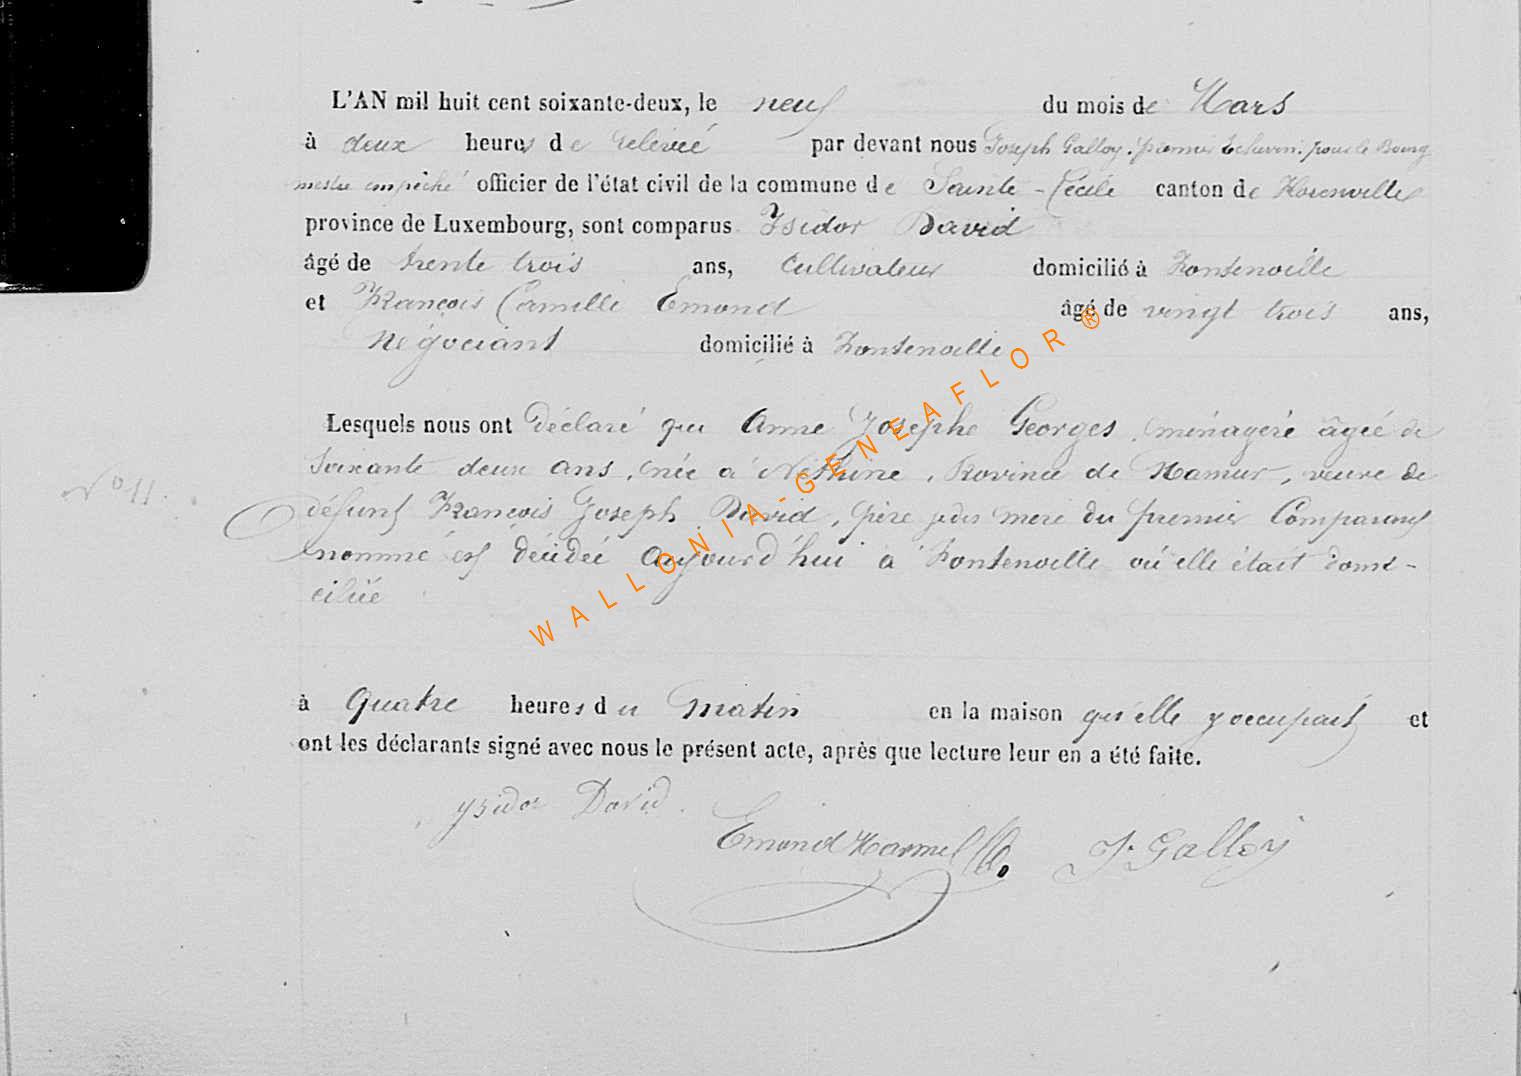 L'AN mil huit cent soixante-deux, le neuf du mois de Mars
à deux heures de relevée par devant nous Joseph Galloy, premier Echevin, pour le Bourg
mestre empêché officier de l'état civil de la commune de Sainte-Cécile canton de Florenville
province de Luxembourg, sont comparus Isidor David
âgé de trente trois ans, Cultivateur domicilié à Fontenoille
et François Camille Emond âgé de vingt trois ans,
Négociant domicilié à Fontenoille
Lesquels nous ont déclaré que Anne Josephe Georges, ménagère âgée de
Soixante deux ans, née à Province de Namur, veuve de
N° 11.
défunt François Joseph David, mère du premier Comparant
nommé est décédée aujourd'hui à Fontenoille où elle était domi-
ciliée
à quatre heures du matin en la maison qu'elle y occupait et
ont les déclarants signé avec nous le présent acte, après que lecture leur en a été faite.
ysidor David.
Emond Harmel J. Galloy
WALLONIA-GENEAFLOR®